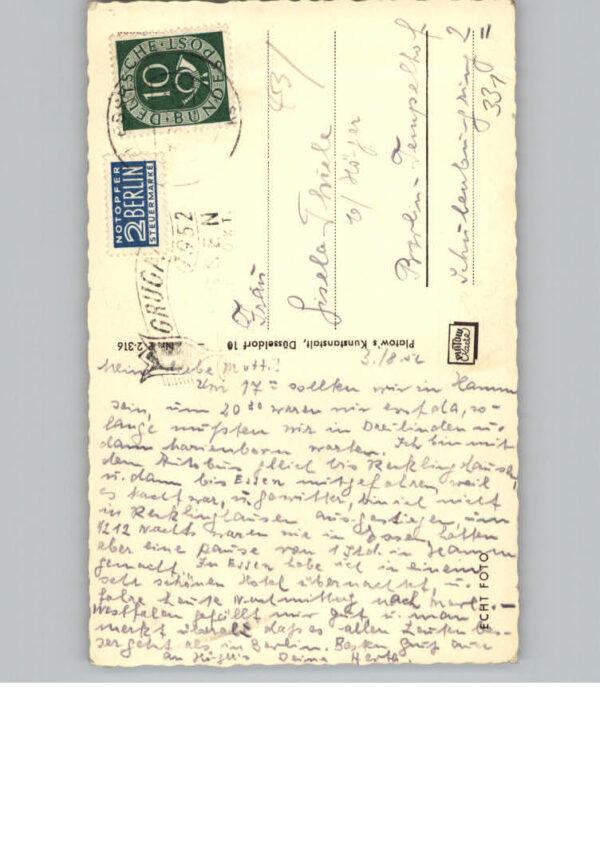 DEUTSCHE · POST · BUNDES
10
NOTOPFER
2 BERLIN
STEUERMARKE
1952
GRUGA
Frau
Gisela Thiele
b/ Höger
Berlin-Tempelhof
Schulenburgring 2
331
Platow's Kunstanstalt, Düsseldorf 10
2-316
ECHT FOTO
3./8.52
Meine liebe Mutti!
Um 17 sollten wir in Hamm
sein, um 20 30 waren wir erst da, so-
lange mußten wir in Dreilinden u.
dann Marienborn warten. Ich bin mit
dem Autobus gleich bis Recklinghausen,
u. dann bis Essen mitgefahren, weil
es Nacht war, u. Gewitter, bin ich nicht
in Recklinghausen ausgestiegen, um
1/2 12 Nachts waren wir in Essen, hatten
aber eine Pause von 1 Std. in Hamm
gemacht. In Essen habe ich in einem
sehr schönen Hotel übernachtet, u.
fahre heute Nachmittag nach Marl.
Westfalen gefällt mir gut u. man
merkt überall, daß es allen Leuten bes-
ser geht als in Berlin. Besten Gruß auch
an Höger's Deine Herta.